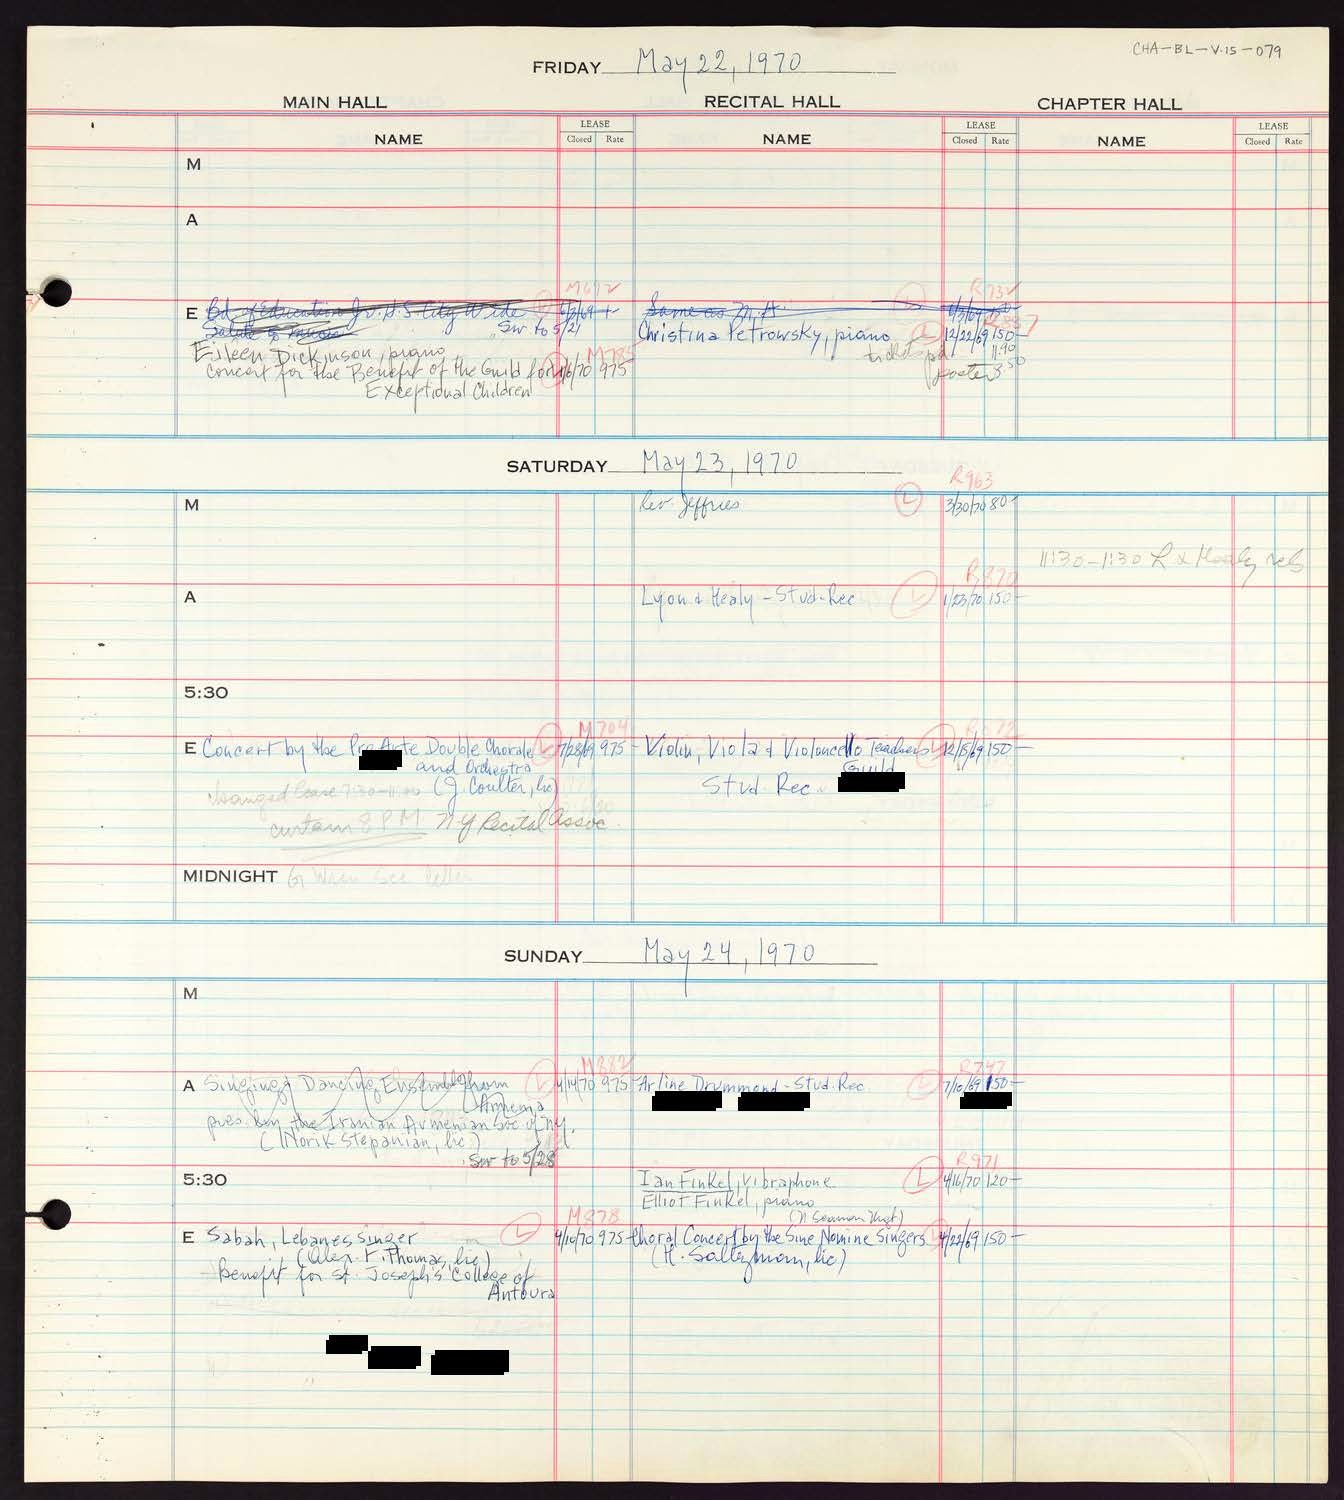 CHA-BL-V.15-079
FRIDAY May 22, 1970
MAIN HALL RECITAL HALL CHAPTER HALL
NAME LEASE Closed Rate NAME LEASE Closed Rate NAME LEASE Closed Rate
M
A
M612 R732
E Bd. of Education Jr. H.S. City Wide 6/2/69 Same as M.H.
Salute to music Sw to 5/21 Christina Petrowsky, piano L 12/22/69 150-
Eileen Dickinson, piano M785 tickets pd 11.90
Concert for the Benefit of the Guild for L 1/6/70 975 poster 3.50
Exceptional Children
SATURDAY May 23, 1970
R963
M Rev. Jeffries L 3/30/70 80-
11:30-1:30 L & Healy reh
R870
A Lyon & Healy - Stud. Rec L 1/23/70 150-
5:30
M704
E Concert by the Pro Arte Double Chorale L 7/28/69 975- Violin, Viola & Violoncello Teachers L 12/15/69 150-
and Orchestra Guild
changed lease 7:30-11:00 (J. Coulter, lic) Stud. Rec.
curtain 8 PM NY Recital Assoc.
MIDNIGHT G. Wren see letter
SUNDAY May 24, 1970
M
M882 R747
A Singing & Dancing Ensemble from L 4/14/70 975- Arline Drummond - Stud. Rec L 7/10/69 150-
Armenia
pres. by the Iranian Armenian Soc of NY.
(Norik Stepanian, lic)
Sw to 5/28
R971
5:30 Ian Finkel, vibraphone L 4/16/70 120-
Elliot Finkel, piano
M878 (N Seaman Mgt)
E Sabah, Lebanes Singer L 4/10/70 975- Choral Concert by the Sine Nomine Singers L 4/22/69 150-
(Alex. F. Thomas, lic) (H. Saltzman, lic)
Benefit for St. Joseph's College of
Antoura